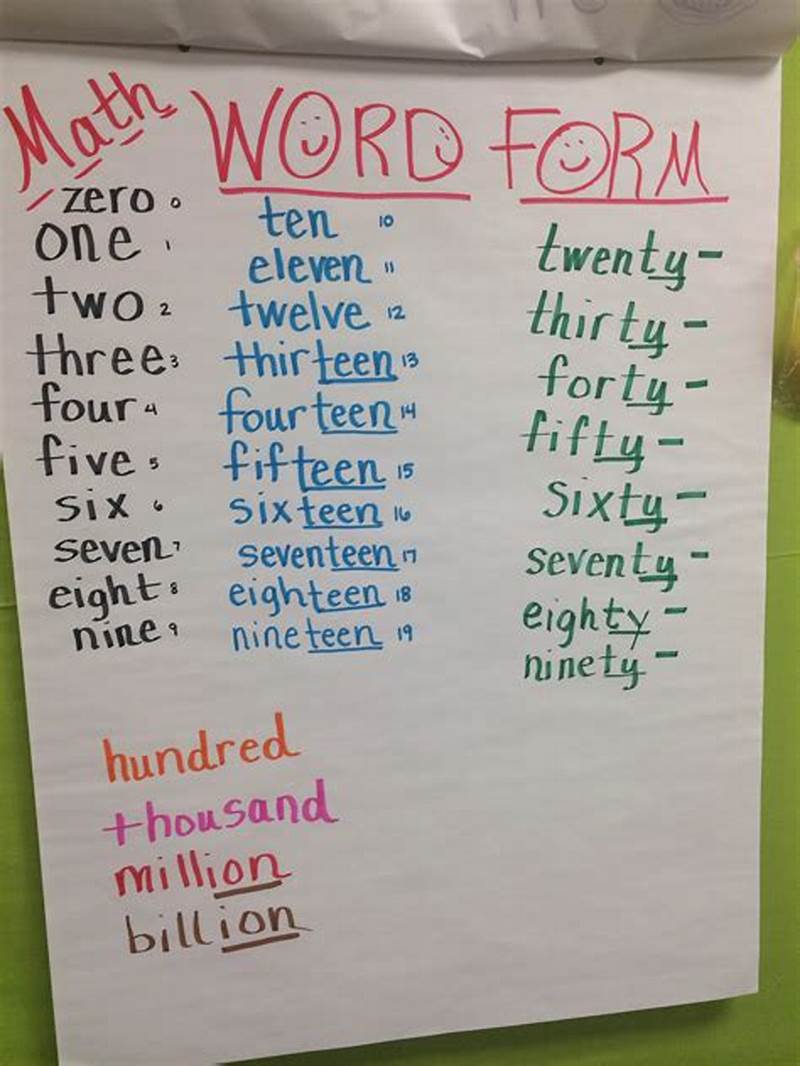 Math WORD FORM
zero 0
one 1
two 2
three 3
four 4
five 5
six 6
seven 7
eight 8
nine 9
ten 10
eleven 11
twelve 12
thirteen 13
fourteen 14
fifteen 15
sixteen 16
seventeen 17
eighteen 18
nineteen 19
twenty-
thirty-
forty-
fifty-
sixty-
seventy-
eighty-
ninety-
hundred
thousand
million
billion